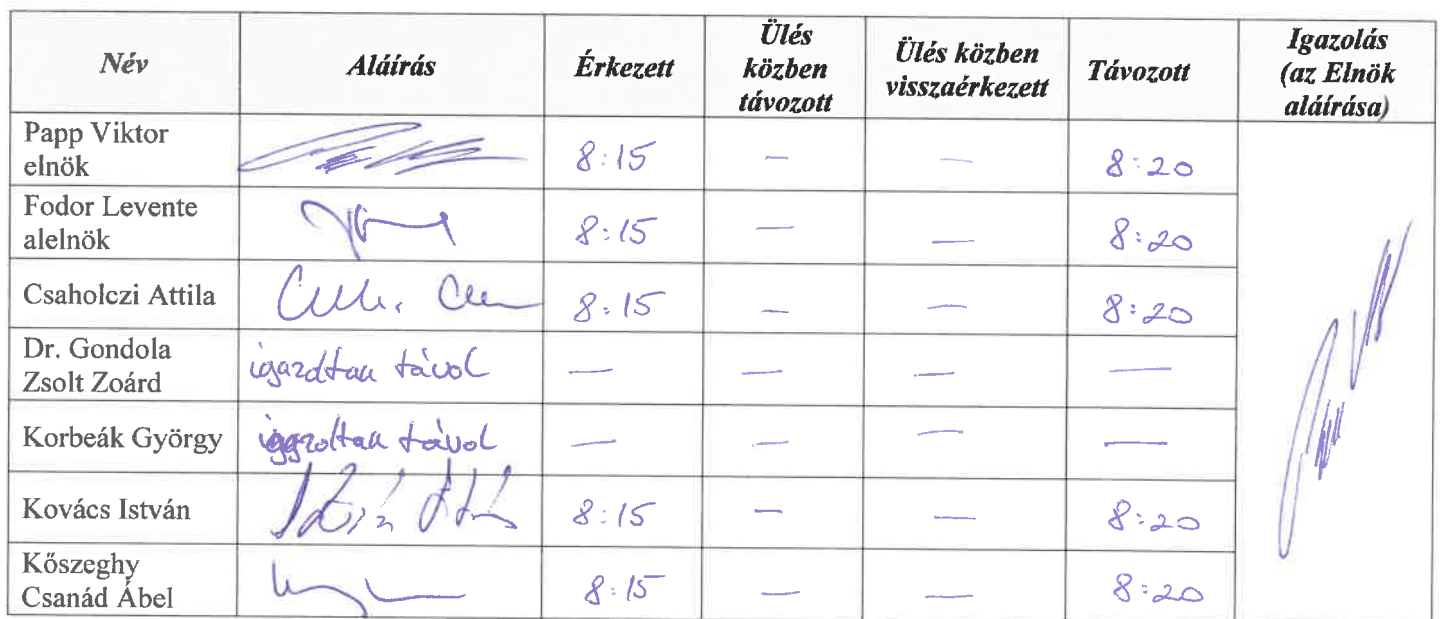 Név Aláírás Érkezett Ülés közben távozott Ülés közben visszaérkezett Távozott Igazolás (az Elnök aláírása)
Papp Viktor elnök 8:15 — — 8:20
Fodor Levente alelnök 8:15 — — 8:20
Csaholczi Attila 8:15 — — 8:20
Dr. Gondola Zsolt Zoárd igazoltan távol — — — —
Korbeák György igazoltan távol — — — —
Kovács István 8:15 — — 8:20
Kőszeghy Csanád Ábel 8:15 — — 8:20